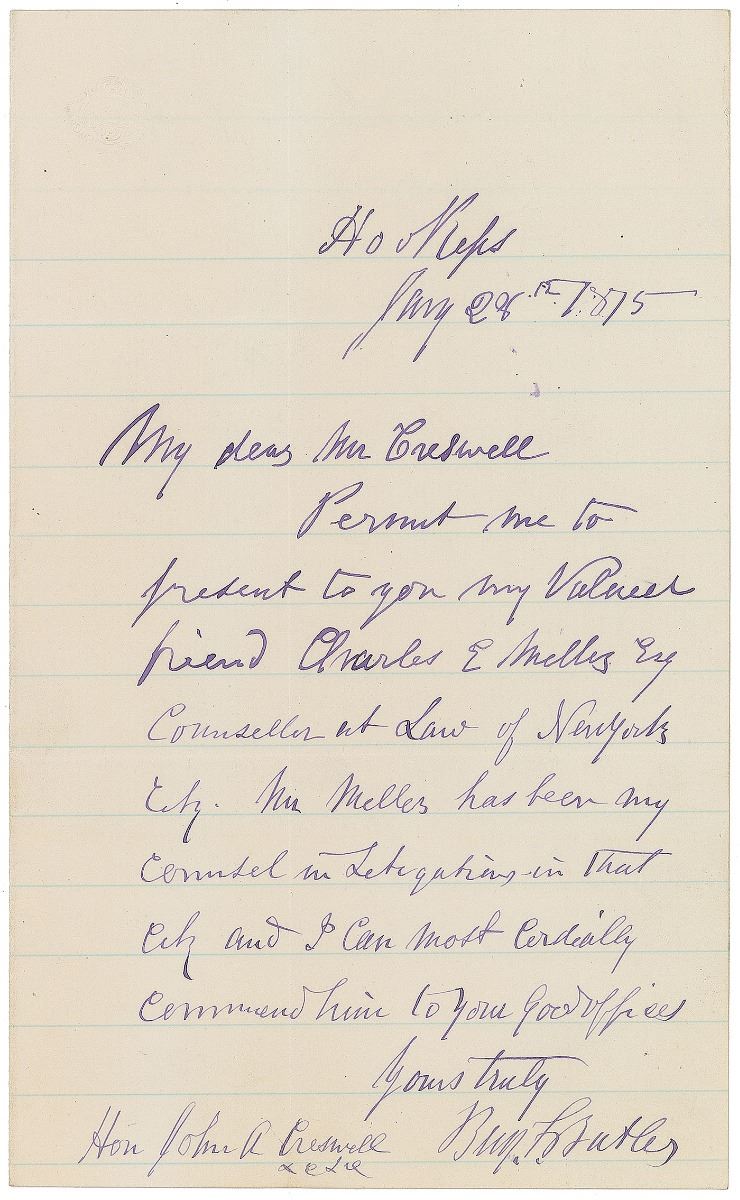 Ho of Reps
Jany 28th 1875
My dear Mr Creswell
Permit me to
present to you my Valued
friend Charles E Miller Esq
Counsellor at Law of New York
City. Mr Miller has been my
counsel in Litigations in that
City and I Can most Cordially
commend him to your Good offices
Yours truly
Benj. F Butler
Hon John A Creswell
&c &c &c